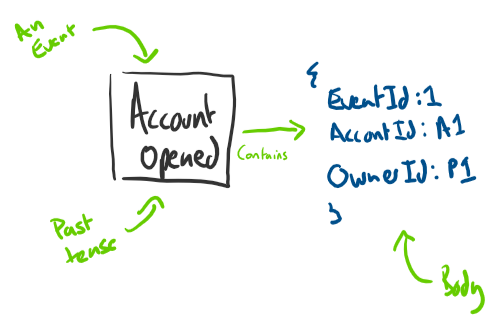 An
Event
Account
Opened
Past
tense
Contains
{
EventId:1
AccontId: A1
OwnerId: P1
}
Body